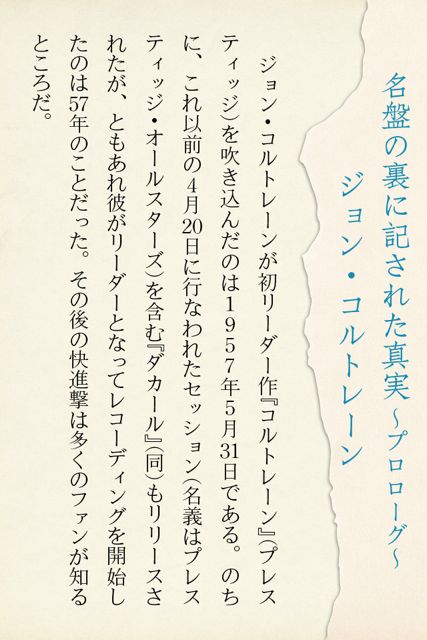 名盤の裏に記された真実～プロローグ～
ジョン・コルトレーン
ジョン・コルトレーンが初リーダー作『コルトレーン』(プレス
ティッジ)を吹き込んだのは1957年5月31日である。のち
に、これ以前の4月20日に行なわれたセッション(名義はプレス
ティッジ・オールスターズ)を含む『ダカール』(同)もリリースさ
れたが、ともあれ彼がリーダーとなってレコーディングを開始し
たのは57年のことだった。その後の快進撃は多くのファンが知る
ところだ。